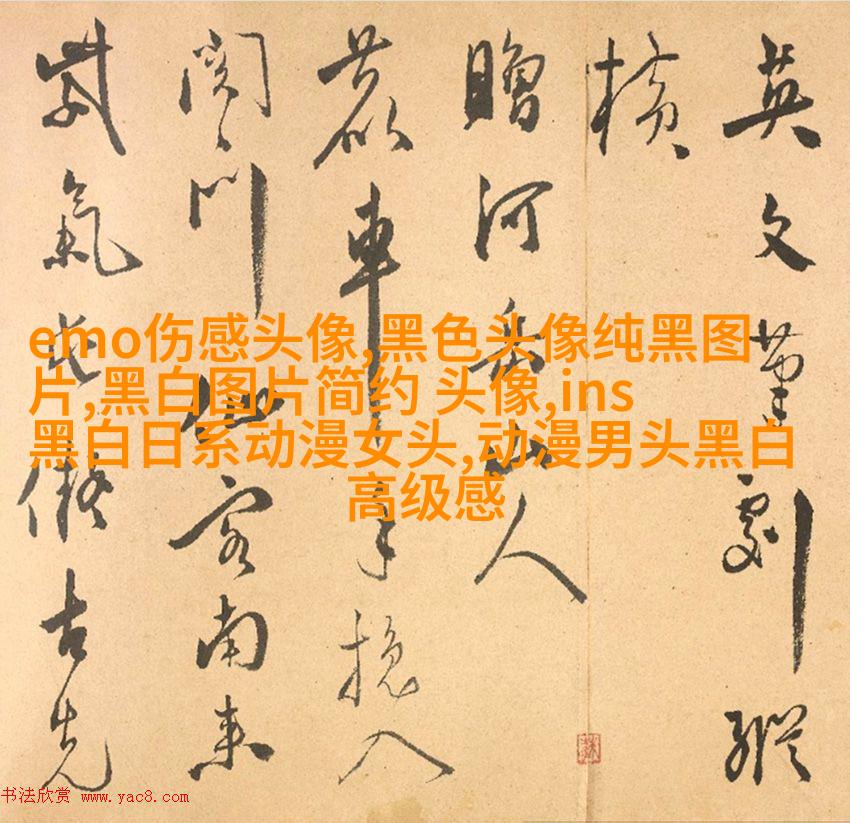 英文 劇縱
橫
贈河 山人
鹿車 手挽入
関门仙客南来
紫氣 儗古先
emo伤感头像,黑色头像纯黑图
片,黑白图片简约 头像,ins
黑白日系动漫女头,动漫男头黑白
高级感
书法欣赏 www.yac8.com